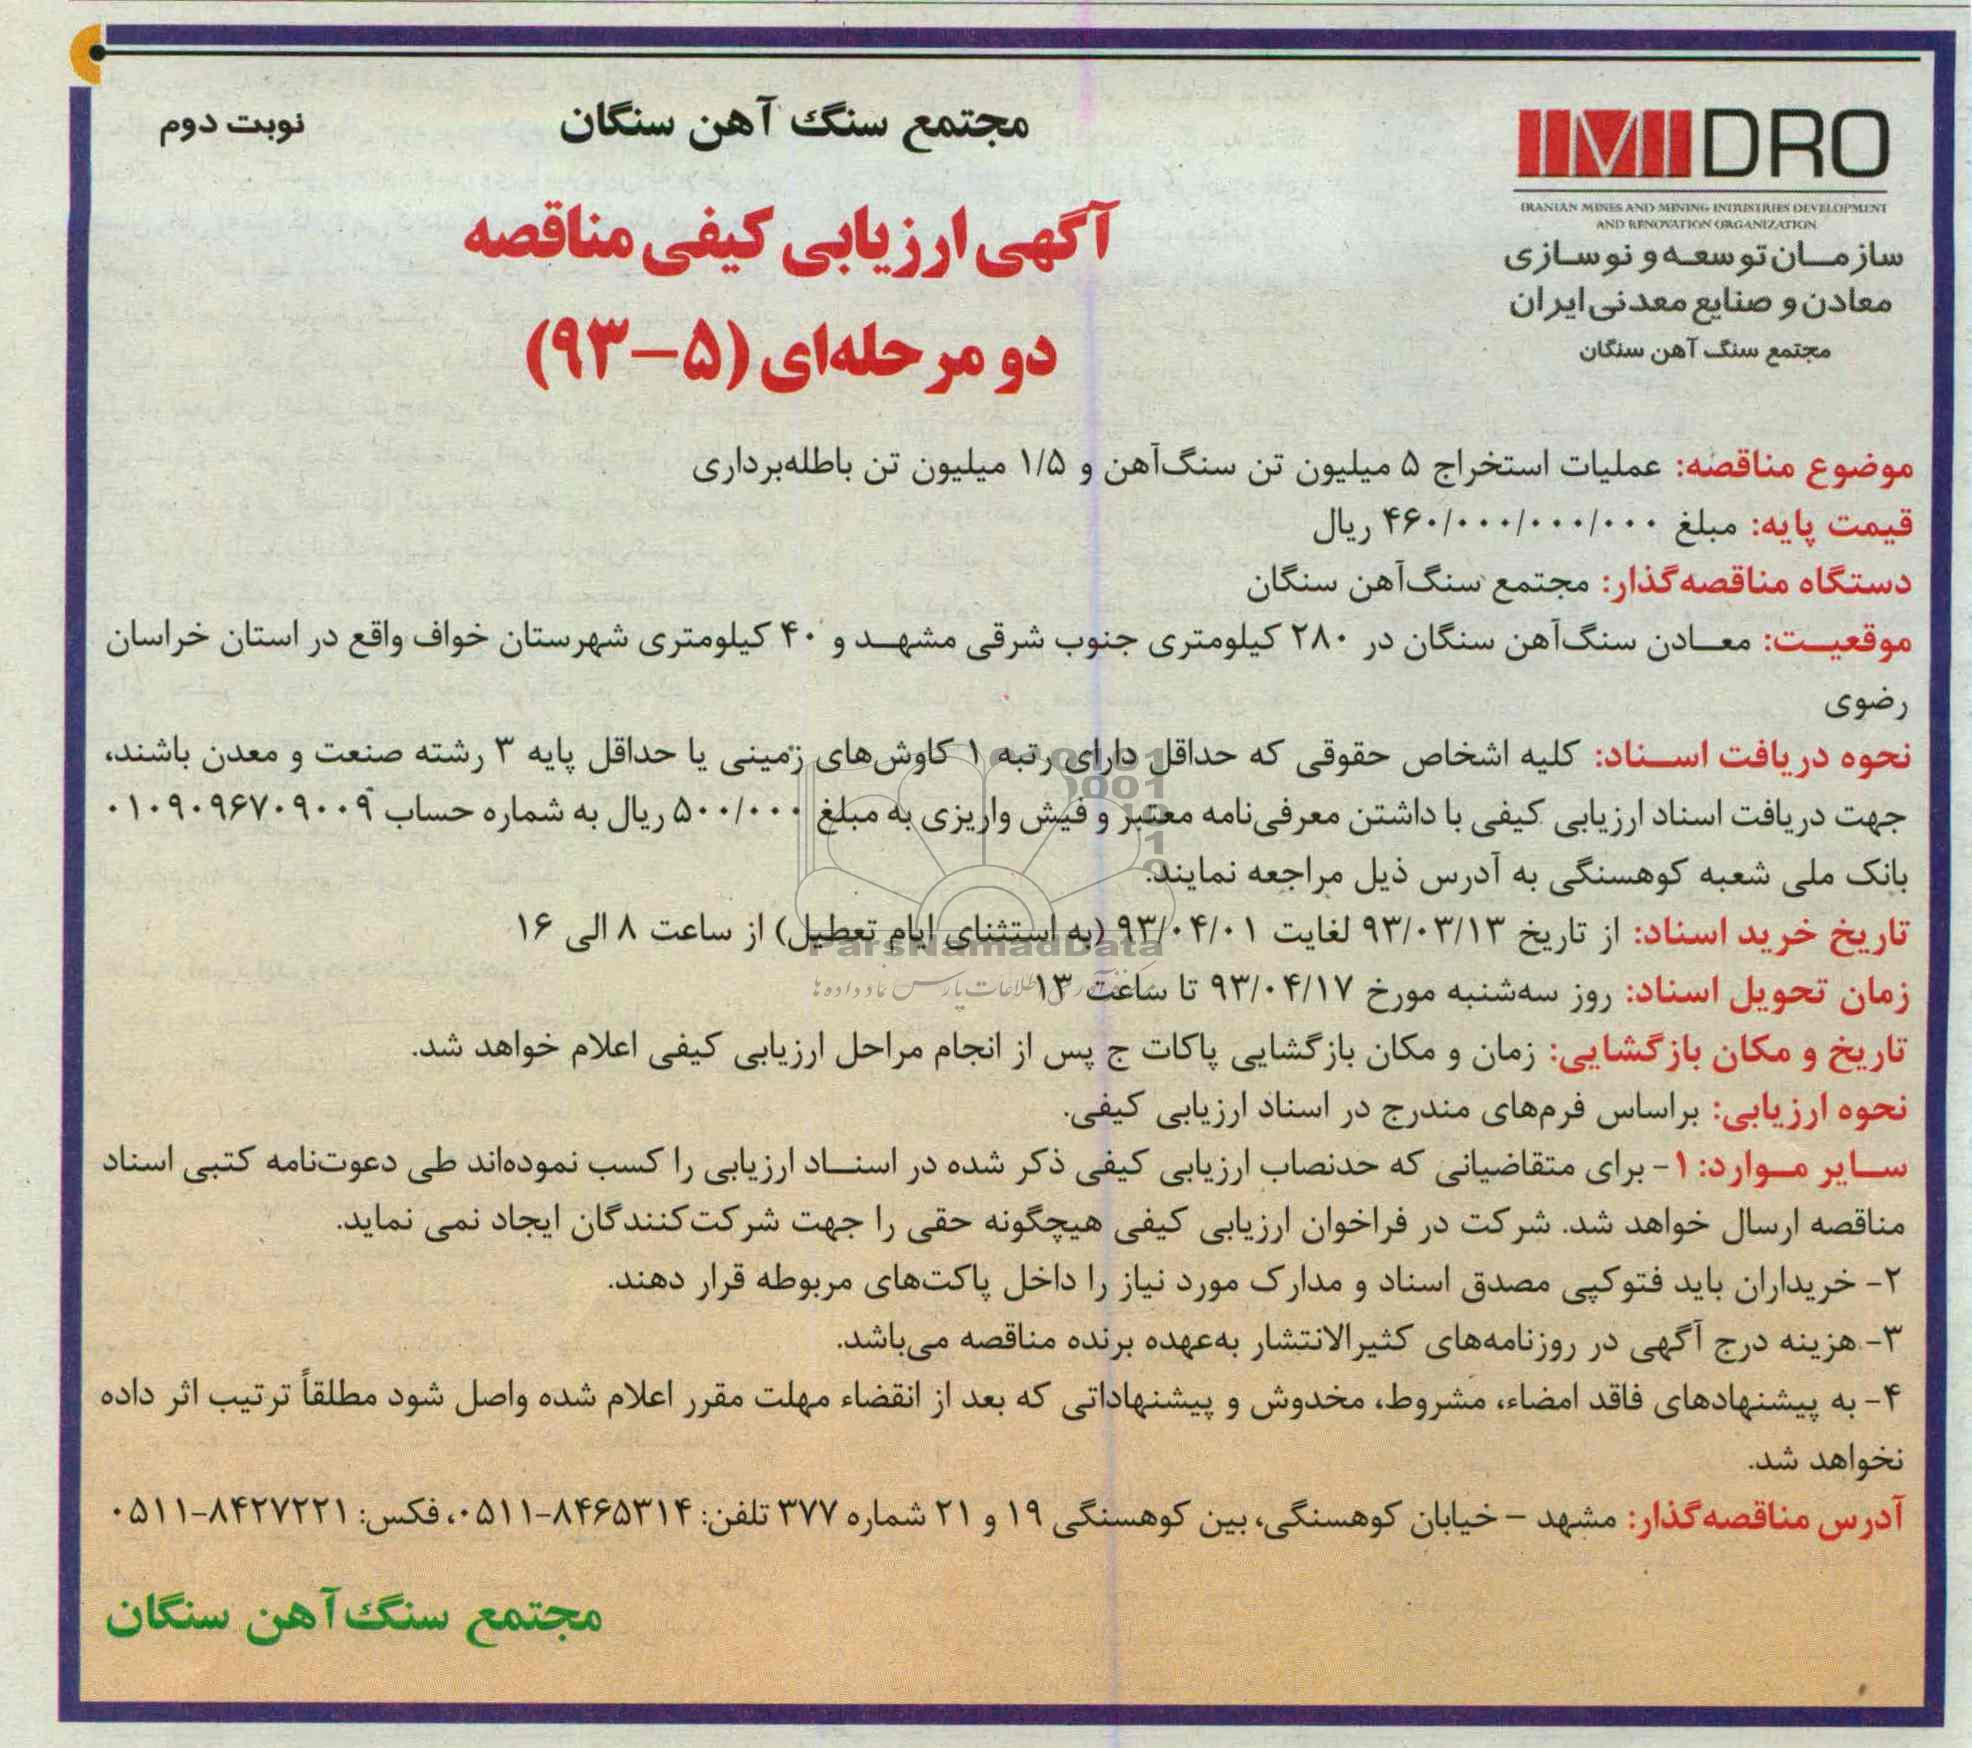 IMIDRO
IRANIAN MINES AND MINING INDUSTRIES DEVELOPMENT
AND RENOVATION ORGANIZATION
سازمان توسعه و نوسازی
معادن و صنایع معدنی ایران
مجتمع سنگ آهن سنگان
مجتمع سنگ آهن سنگان
نوبت دوم
آگهی ارزیابی کیفی مناقصه
دو مرحله‌ای (۵-۹۳)
موضوع مناقصه: عملیات استخراج ۵ میلیون تن سنگ‌آهن و ۱/۵ میلیون تن باطله‌برداری
قیمت پایه: مبلغ ۴۶۰/۰۰۰/۰۰۰/۰۰۰ ریال
دستگاه مناقصه‌گذار: مجتمع سنگ‌آهن سنگان
موقعیت: معادن سنگ‌آهن سنگان در ۲۸۰ کیلومتری جنوب شرقی مشهد و ۴۰ کیلومتری شهرستان خواف واقع در استان خراسان
رضوی
نحوه دریافت اسناد: کلیه اشخاص حقوقی که حداقل دارای رتبه ۱ کاوش‌های زمینی یا حداقل پایه ۳ رشته صنعت و معدن باشند،
جهت دریافت اسناد ارزیابی کیفی با داشتن معرفی‌نامه معتبر و فیش واریزی به مبلغ ۵۰۰/۰۰۰ ریال به شماره حساب ۰۱۰۹۰۹۶۷۰۹۰۰۹
بانک ملی شعبه کوهسنگی به آدرس ذیل مراجعه نمایند.
تاریخ خرید اسناد: از تاریخ ۹۳/۰۳/۱۳ لغایت ۹۳/۰۴/۰۱ (به استثنای ایام تعطیل) از ساعت ۸ الی ۱۶
ParsNamadData
زمان تحویل اسناد: روز سه‌شنبه مورخ ۹۳/۰۴/۱۷ تا ساعت ۱۳
تاریخ و مکان بازگشایی: زمان و مکان بازگشایی پاکات ج پس از انجام مراحل ارزیابی کیفی اعلام خواهد شد.
نحوه ارزیابی: براساس فرم‌های مندرج در اسناد ارزیابی کیفی.
سایر موارد: ۱- برای متقاضیانی که حدنصاب ارزیابی کیفی ذکر شده در اسناد ارزیابی را کسب نموده‌اند طی دعوت‌نامه کتبی اسناد
مناقصه ارسال خواهد شد. شرکت در فراخوان ارزیابی کیفی هیچگونه حقی را جهت شرکت‌کنندگان ایجاد نمی نماید.
۲- خریداران باید فتوکپی مصدق اسناد و مدارک مورد نیاز را داخل پاکت‌های مربوطه قرار دهند.
۳- هزینه درج آگهی در روزنامه‌های کثیرالانتشار به‌عهده برنده مناقصه می‌باشد.
۴- به پیشنهادهای فاقد امضاء، مشروط، مخدوش و پیشنهاداتی که بعد از انقضاء مهلت مقرر اعلام شده واصل شود مطلقاً ترتیب اثر داده
نخواهد شد.
آدرس مناقصه‌گذار: مشهد - خیابان کوهسنگی، بین کوهسنگی ۱۹ و ۲۱ شماره ۳۷۷ تلفن: ۸۴۶۵۳۱۴-۰۵۱۱، فکس: ۸۴۲۷۲۲۱-۰۵۱۱
مجتمع سنگ‌آهن سنگان